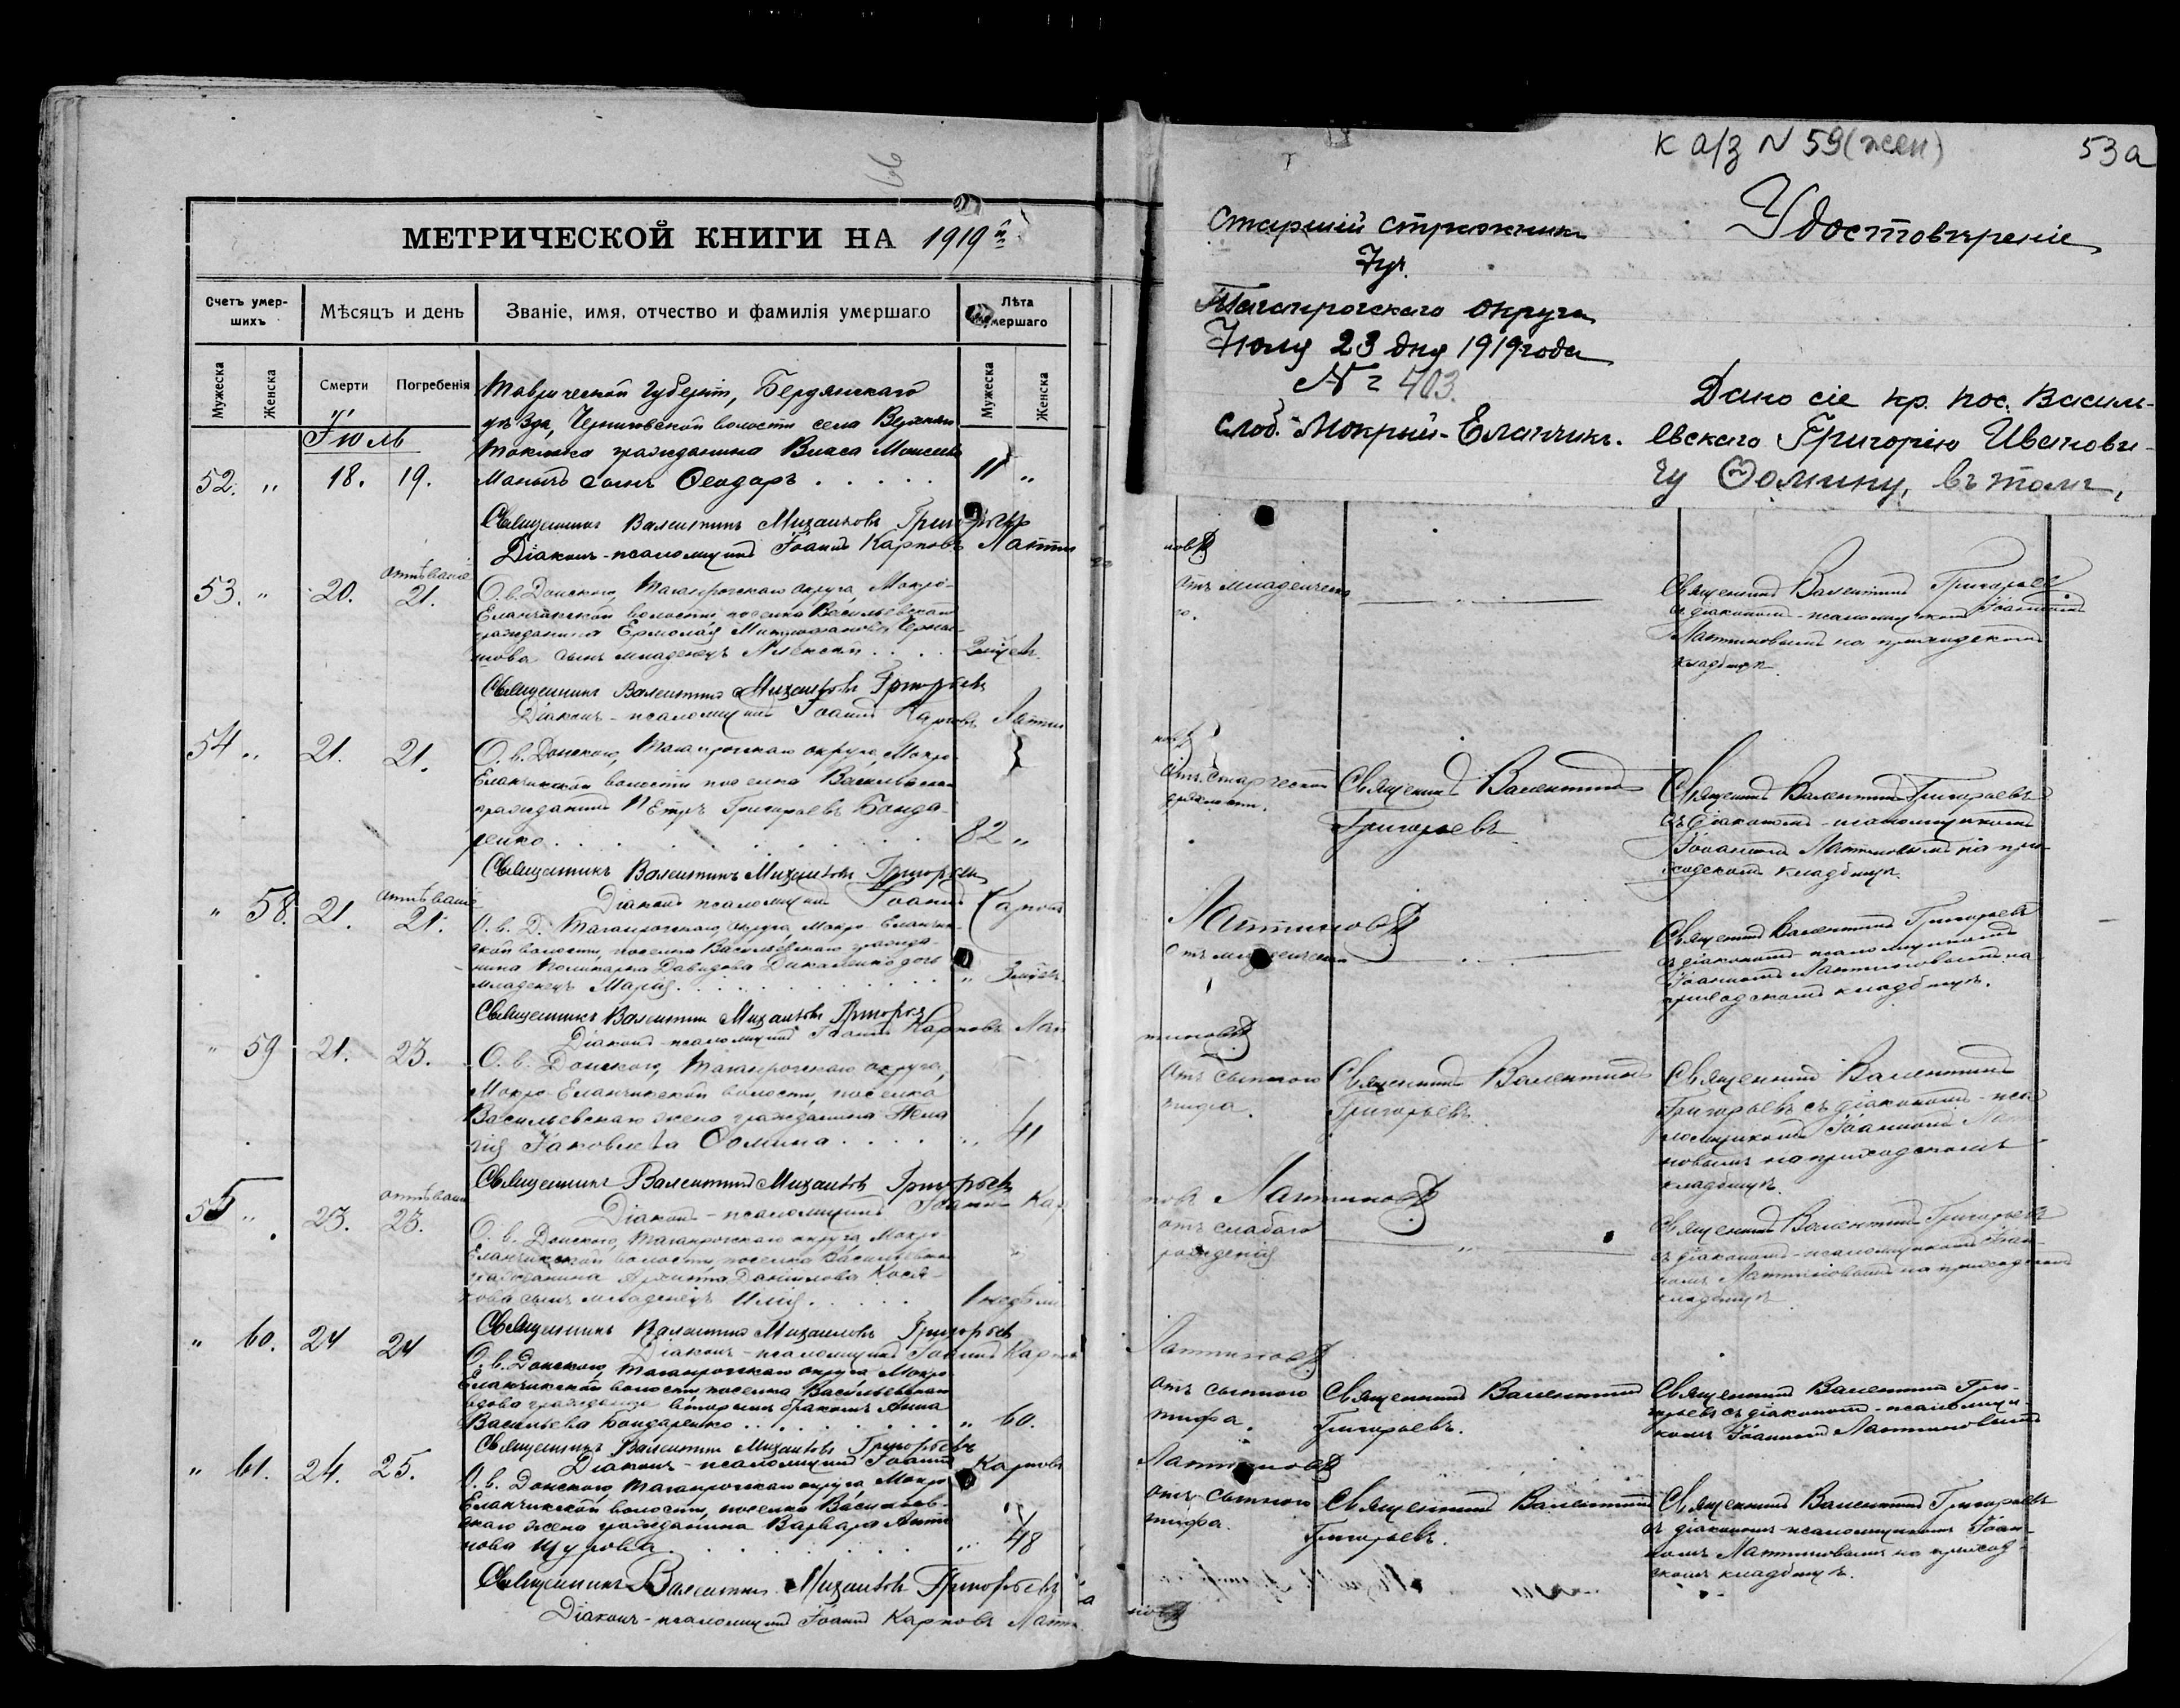 66
МЕТРИЧЕСКОЙ КНИГИ НА 1919 й
Счетъ умер-
шихъ
Мѣсяцъ и день
Званіе, имя, отчество и фамилія умершаго
Лѣта
умершаго
Мужеска
Женска
Смерти
Погребенія
Мужеска
Женска
Таврической губерніи, Бердянскаго
уѣзда, Черниговской волости села
Токмака гражданина Власа Моисеева
Іюль
52. „ 18. 19. сынъ Ѳеодоръ . . . . . 11 „
Священникъ Валентинъ Михаиловъ Григорьевъ
Діаконъ-псаломщикъ Іоаннъ Карповъ Латти
53. „ 20. отпѣваніе 21. О. в. Донского, Таганрогскаго округа, Мокро-
Еланчикской волости поселка Васильевскаго
гражданина Ермолая
сынъ младенецъ Алексѣй . . . .
Священникъ Валентинъ Михаиловъ Григорьевъ
Діаконъ-псаломщикъ Іоаннъ Карповъ Латти
54 „ 21. 21. О. в. Донского, Таганрогскаго округа, Мокро-
Еланчикской волости поселка Васильевскаго
гражданинъ Петръ Григорьевъ Бонда-
ренко . . . . . . . 82 „
Священникъ Валентинъ Михаиловъ Григорьевъ
Діаконъ псаломщикъ Іоаннъ Карповъ
„ 58. 21. отпѣваніе 21. О. в. Д. Таганрогскаго округа, Мокро-Еланчик-
ской волости, поселка Васильевскаго гражда-
нина Поликарпа Давидова Дикаленко дочь
младенецъ Марія . . . . . . . „
Священникъ Валентинъ Михаиловъ Григорьев
Діаконъ-псаломщикъ Іоаннъ Карповъ Лат
„ 59 21. 23. О. в. Донского, Таганрогскаго округа,
Мокро-Еланчикской волости, поселка
Васильевскаго жена гражданина Пела
гія Іаковлева Ѳомина . . . . „ 41
Священникъ Валентинъ Михаиловъ Григорьевъ
Діаконъ-псаломщикъ Іоаннъ Кар
55 „ 23. отпѣваніе 23. О. в. Донского, Таганрогскаго округа, Мокро-
Еланчикской волости, поселка Васильевскаго
гражданина Даніилова Кося-
кова сынъ младенецъ Илія . . . . . 1 недѣли
Священникъ Валентинъ Михаиловъ Григорьевъ
Діаконъ-псаломщикъ Іоаннъ Карпов
„ 60. 24 24 О. в. Донского, Таганрогскаго округа Мокро-
Еланчикской волости поселка Васильевскаго
вдова гражданка вторымъ бракомъ Анна
Васильева Бондаренко . . . . . . „ 60.
Священникъ Валентинъ Михаиловъ Григорьевъ
Діаконъ-псаломщикъ Іоаннъ Карповъ
„ 61. 24. 25. О. в. Донского, Таганрогскаго округа, Мокро-
Еланчикской волости, поселка Васильев-
скаго жена гражданина Варвара Анто
нова Щурова . . . . . . . „ 48
Священникъ Валентинъ Михаиловъ Григорьевъ
Діаконъ-псаломщикъ Іоаннъ Карповъ Латти
К а/з N 59 (жен) 53а
Старшій стражникъ
7 уч.
Таганрогскаго округа
Іюля 23 дня 1919 года
№ 403.
Слоб. Мокрый-Еланчикъ.
Удостовѣреніе
Дано сіе кр. пос. Василь-
евскаго Григорію Иванови-
чу Ѳомину, въ томъ,
новъ
Отъ младенческа
го.
Священникъ Валентинъ Григорьев
съ діакономъ-псаломщикомъ Іоанномъ
Латтиновымъ на приходскомъ
кладбищѣ.
новъ
Отъ старческой
дряхлости.
Священникъ Валентинъ
Григорьевъ
Священникъ Валентинъ Григорьевъ
съ діакономъ-псаломщикомъ
Іоанномъ Латтиновымъ на при-
ходскомъ кладбищѣ.
Латтиновъ
Отъ младенческаго
Священникъ Валентинъ Григорьевъ
съ діакономъ псаломщикомъ
Іоанномъ Латтиновымъ на
приходскомъ кладбищѣ.
тиновъ
Отъ сыпного
тифа.
Священникъ Валентинъ
Григорьевъ.
Священникъ Валентинъ
Григорьевъ съ діакономъ-пса
ломщикомъ Іоанномъ Лат
новымъ на приходскомъ
кладбищѣ.
повъ Латтиновъ
отъ слабаго
рожденія
Священникъ Валентинъ Григорьевъ
съ діакономъ-псаломщикомъ Іоан-
номъ Латтиновымъ на приходском
кладбищѣ
Латтиновъ
отъ сыпного
тифа.
Священникъ Валентинъ
Григорьевъ.
Священникъ Валентинъ Гри-
горьевъ съ діакономъ-псаломщи-
комъ Іоанномъ Латтиновымъ
Латтиновъ
отъ сыпного
тифа.
Священникъ Валентинъ
Григорьевъ.
Священникъ Валентинъ Григорьевъ
съ діакономъ-псаломщикомъ Іоан-
номъ Латтиновымъ на приход-
скомъ кладбищѣ.
новъ